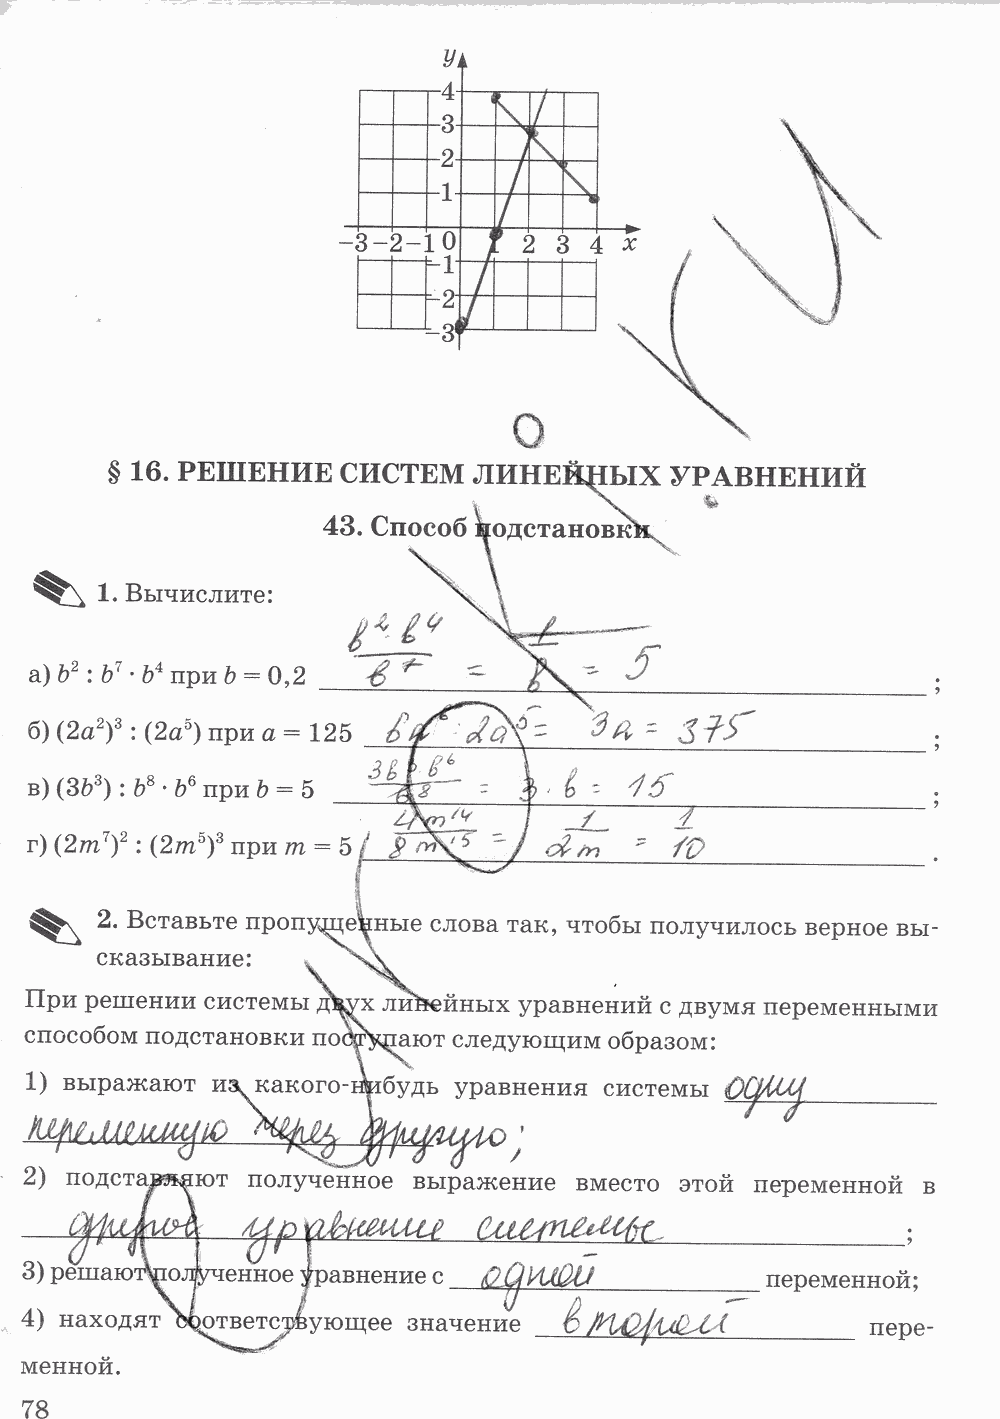 y
4
3
2
1
–3 –2 –1 0 1 2 3 4 x
–1
–2
–3
§ 16. РЕШЕНИЕ СИСТЕМ ЛИНЕЙНЫХ УРАВНЕНИЙ
43. Способ подстановки
1. Вычислите:
а) b² : b⁷ · b⁴ при b = 0,2 в²·в⁴/в⁷ = 1/в = 5 ;
б) (2a²)³ : (2a⁵) при a = 125 6a⁶ : 2a⁵ = 3a = 375 ;
в) (3b³) : b⁸ · b⁶ при b = 5 3в³·в⁶/в⁸ = 3·в = 15 ;
г) (2m⁷)² : (2m⁵)³ при m = 5 4m¹⁴/8m¹⁵ = 1/2m = 1/10 .
2. Вставьте пропущенные слова так, чтобы получилось верное вы-
сказывание:
При решении системы двух линейных уравнений с двумя переменными
способом подстановки поступают следующим образом:
1) выражают из какого-нибудь уравнения системы одну
переменную через другую;
2) подставляют полученное выражение вместо этой переменной в
другое уравнение системы ;
3) решают полученное уравнение с одной переменной;
4) находят соответствующее значение второй пере-
менной.
78